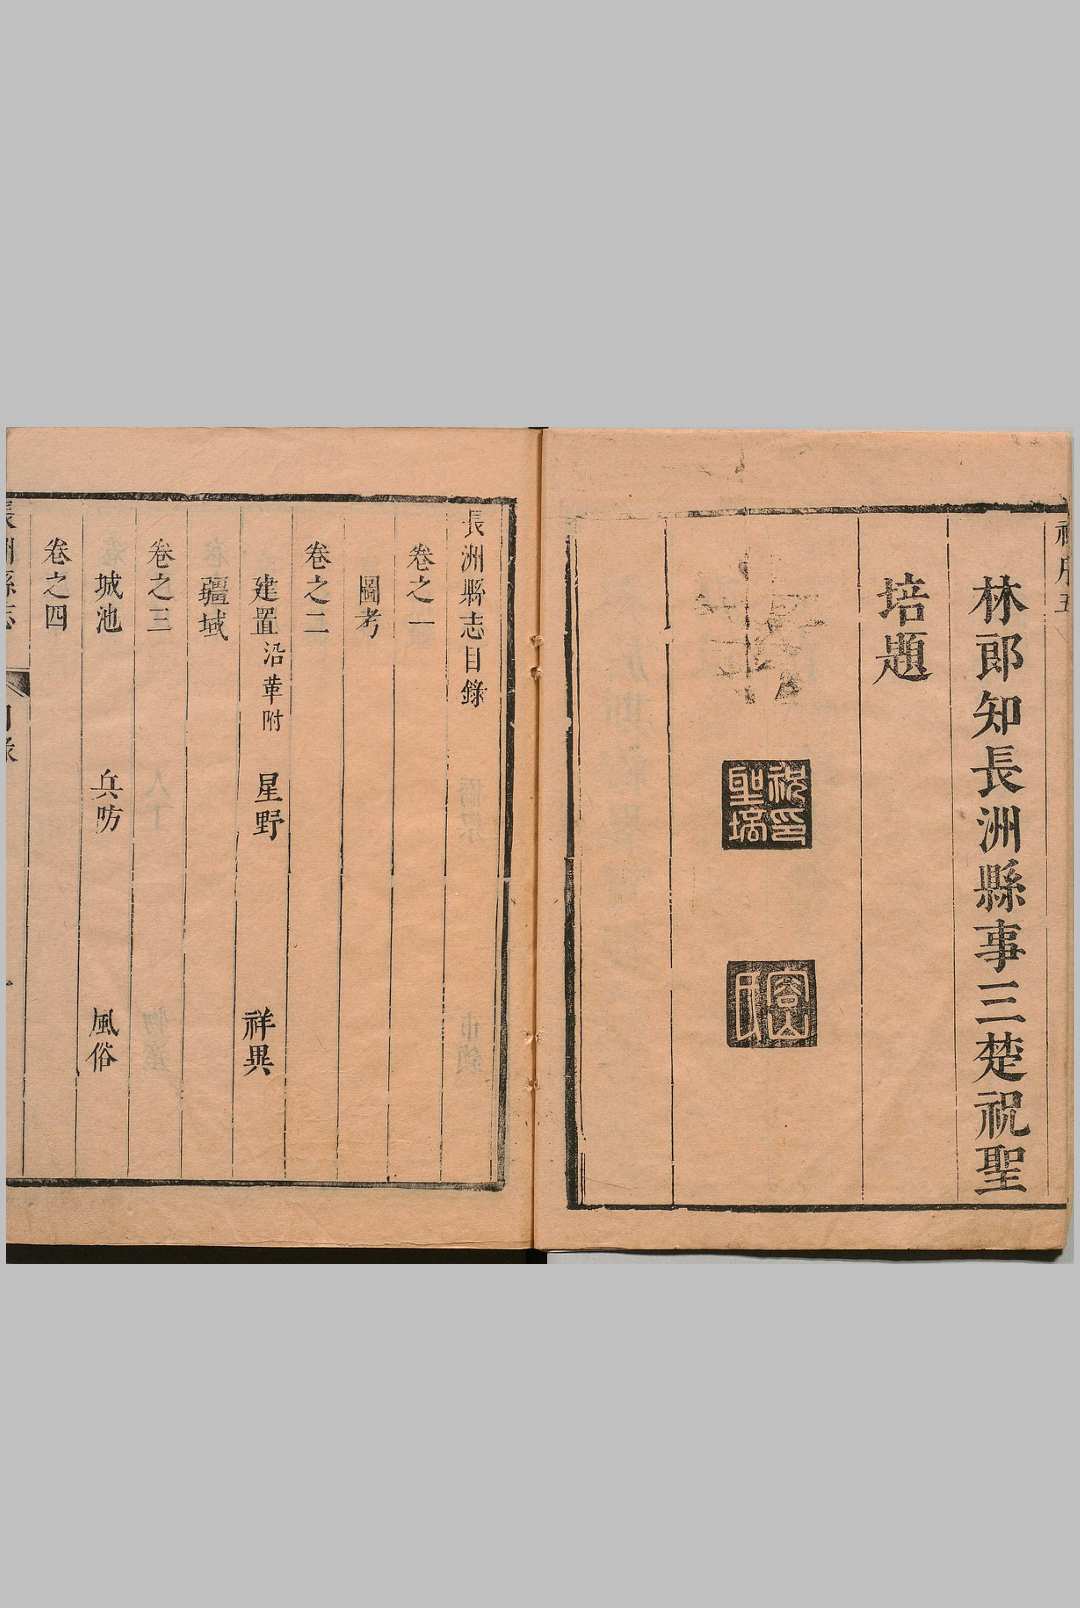 林郎知長洲縣事三楚祝聖
培題
祝聖培印
長洲縣志目錄
卷之一
圖考
卷之二
建置沿革附 星野 祥異
疆域
卷之三
城池 兵防 風俗
卷之四
長洲縣志 目錄 一